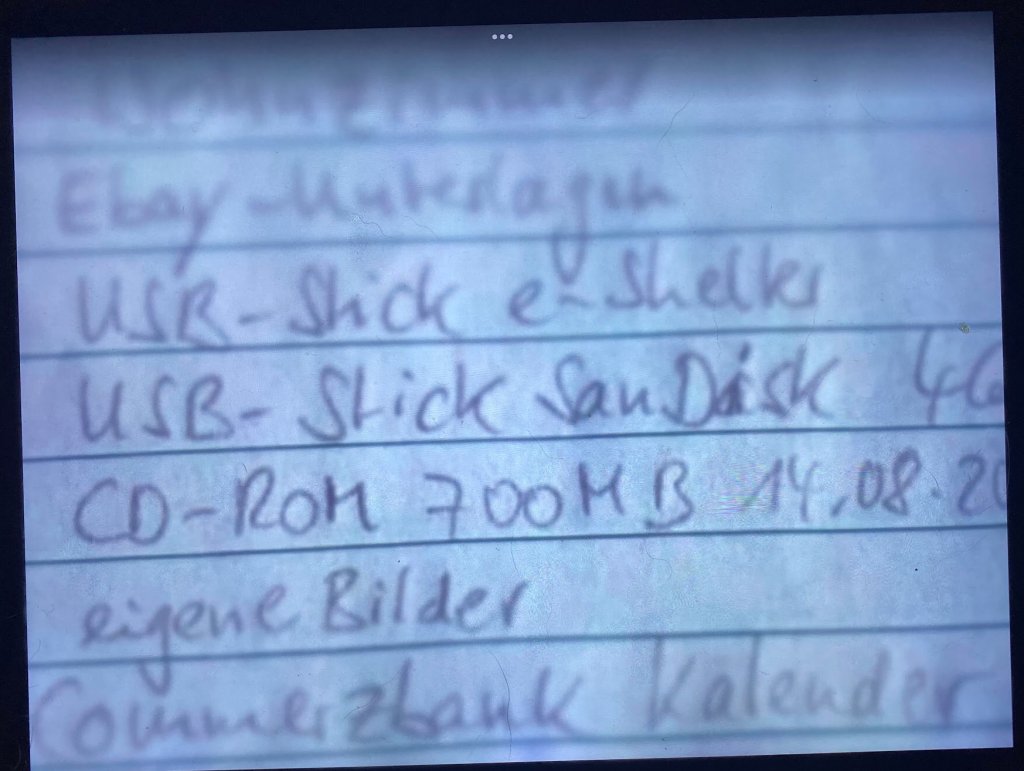 Ebay-Unterlagen
USB-Stick e-Shelter
USB-Stick SanDisk 4G
CD-ROM 700MB 14.08.20
eigene Bilder
Commerzbank Kalender